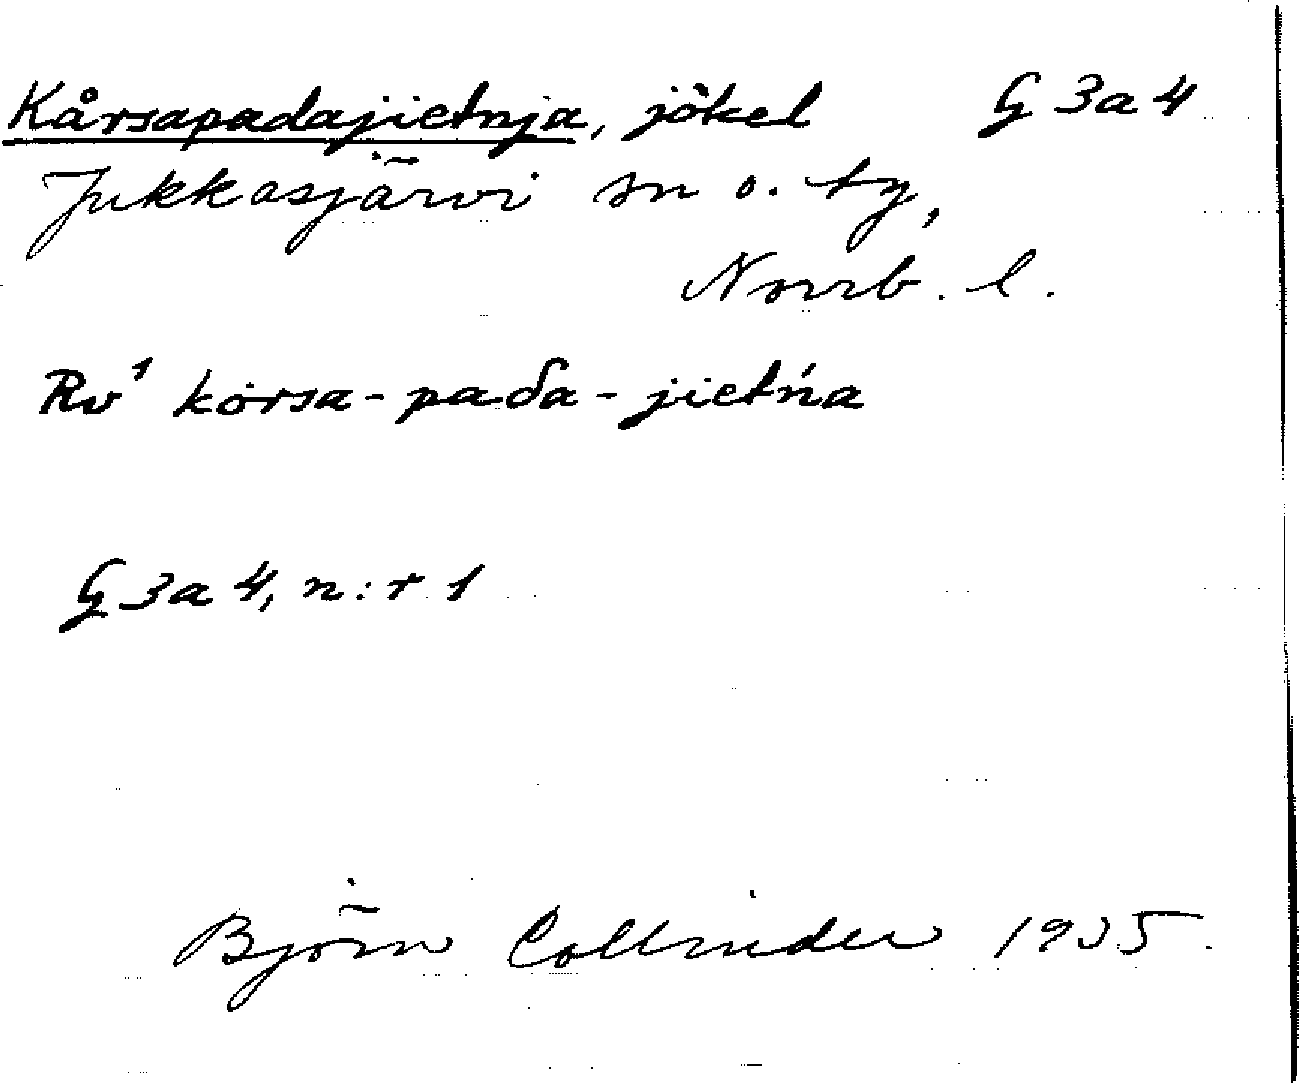 Kårsapadajietnja, jökel G 3a4
Jukkasjärvi sn o. tg,
Norrb. l.
Rv¹ kȯrsa-paδa-jietńa
G 3a 4, n:r 1
Björn Collinder 1935.